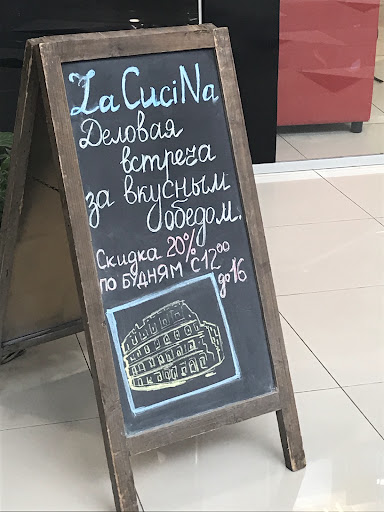 La CuciNa
Деловая
встреча
за вкусным
обедом.
Скидка 20%
по будням с 12⁰⁰
до 16